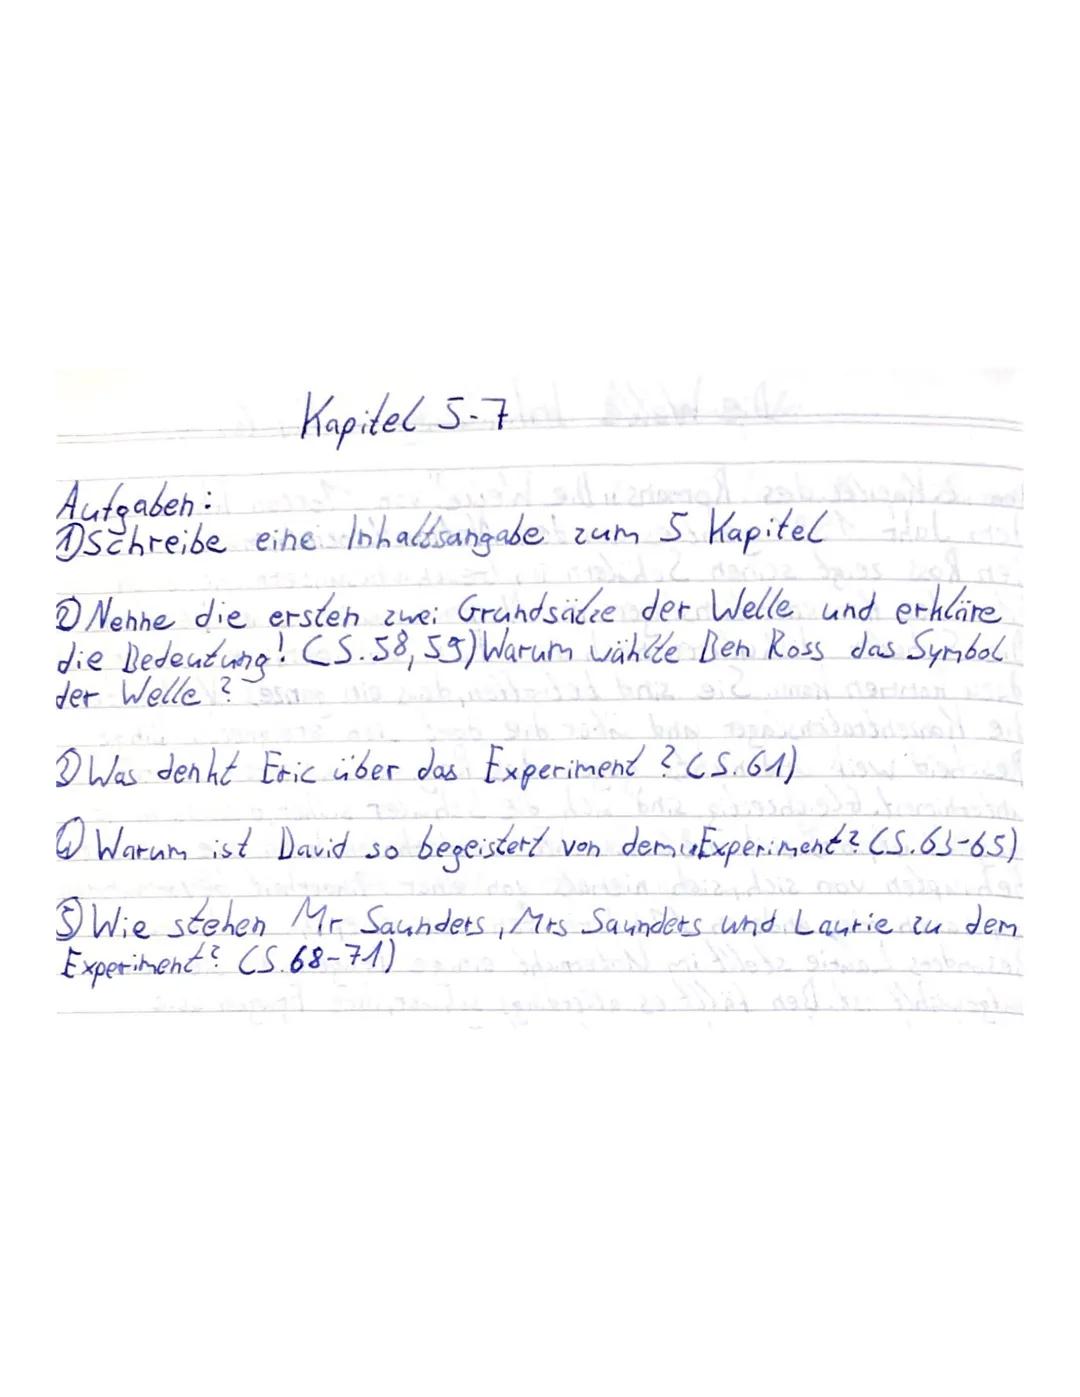 Kapitel 5-7
Aufgaben:
①Schreibe eine Inhaltsangabe zum 5 Kapitel
② Nenne die ersten zwei Grundsätze der Welle und erkläre
die Bedeutung! (S.58,59) Warum wählte Ben Ross das Symbol
der Welle?
③ Was denkt Eric über das Experiment? (S.61)
④ Warum ist David so begeistert von dem Experiment? (S.63-65)
⑤ Wie stehen Mr Saunders, Mrs Saunders und Laurie zu dem
Experiment? (S.68-71)